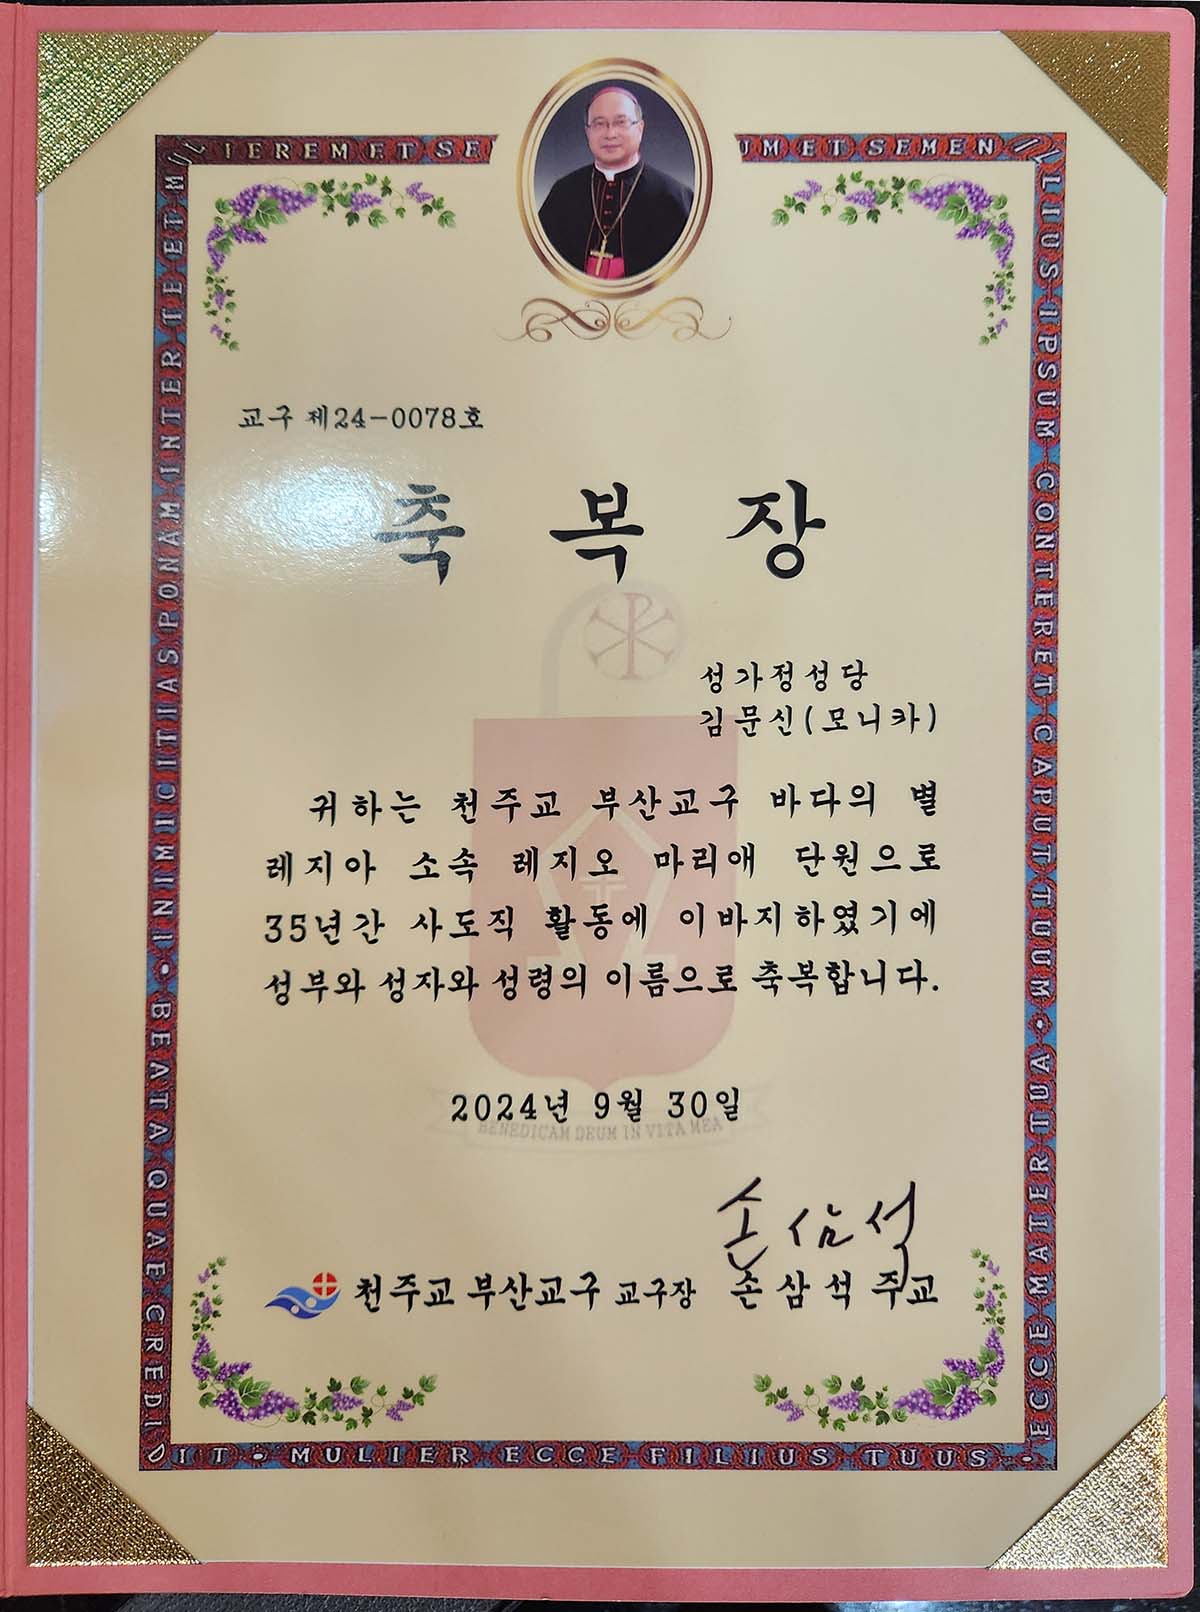 IEREM ET SE
UM ET SEMEN
ILLIUS · IPSUM CONTERET CAPUT TUUM · ECCE MATER TUA ·
INIMICITIAS PONAM INTER TE ET MUL
BEATA QUAE CREDIDIT · MULIER ECCE FILIUS TUUS ·
교구 제24-0078호
축 복 장
성가정성당
김문신(모니카)
귀하는 천주교 부산교구 바다의 별
레지아 소속 레지오 마리애 단원으로
35년간 사도직 활동에 이바지하였기에
성부와 성자와 성령의 이름으로 축복합니다.
2024년 9월 30일
BENEDICAM DEUM IN VITA MEA
손삼석
천주교 부산교구 교구장 손 삼 석 주교